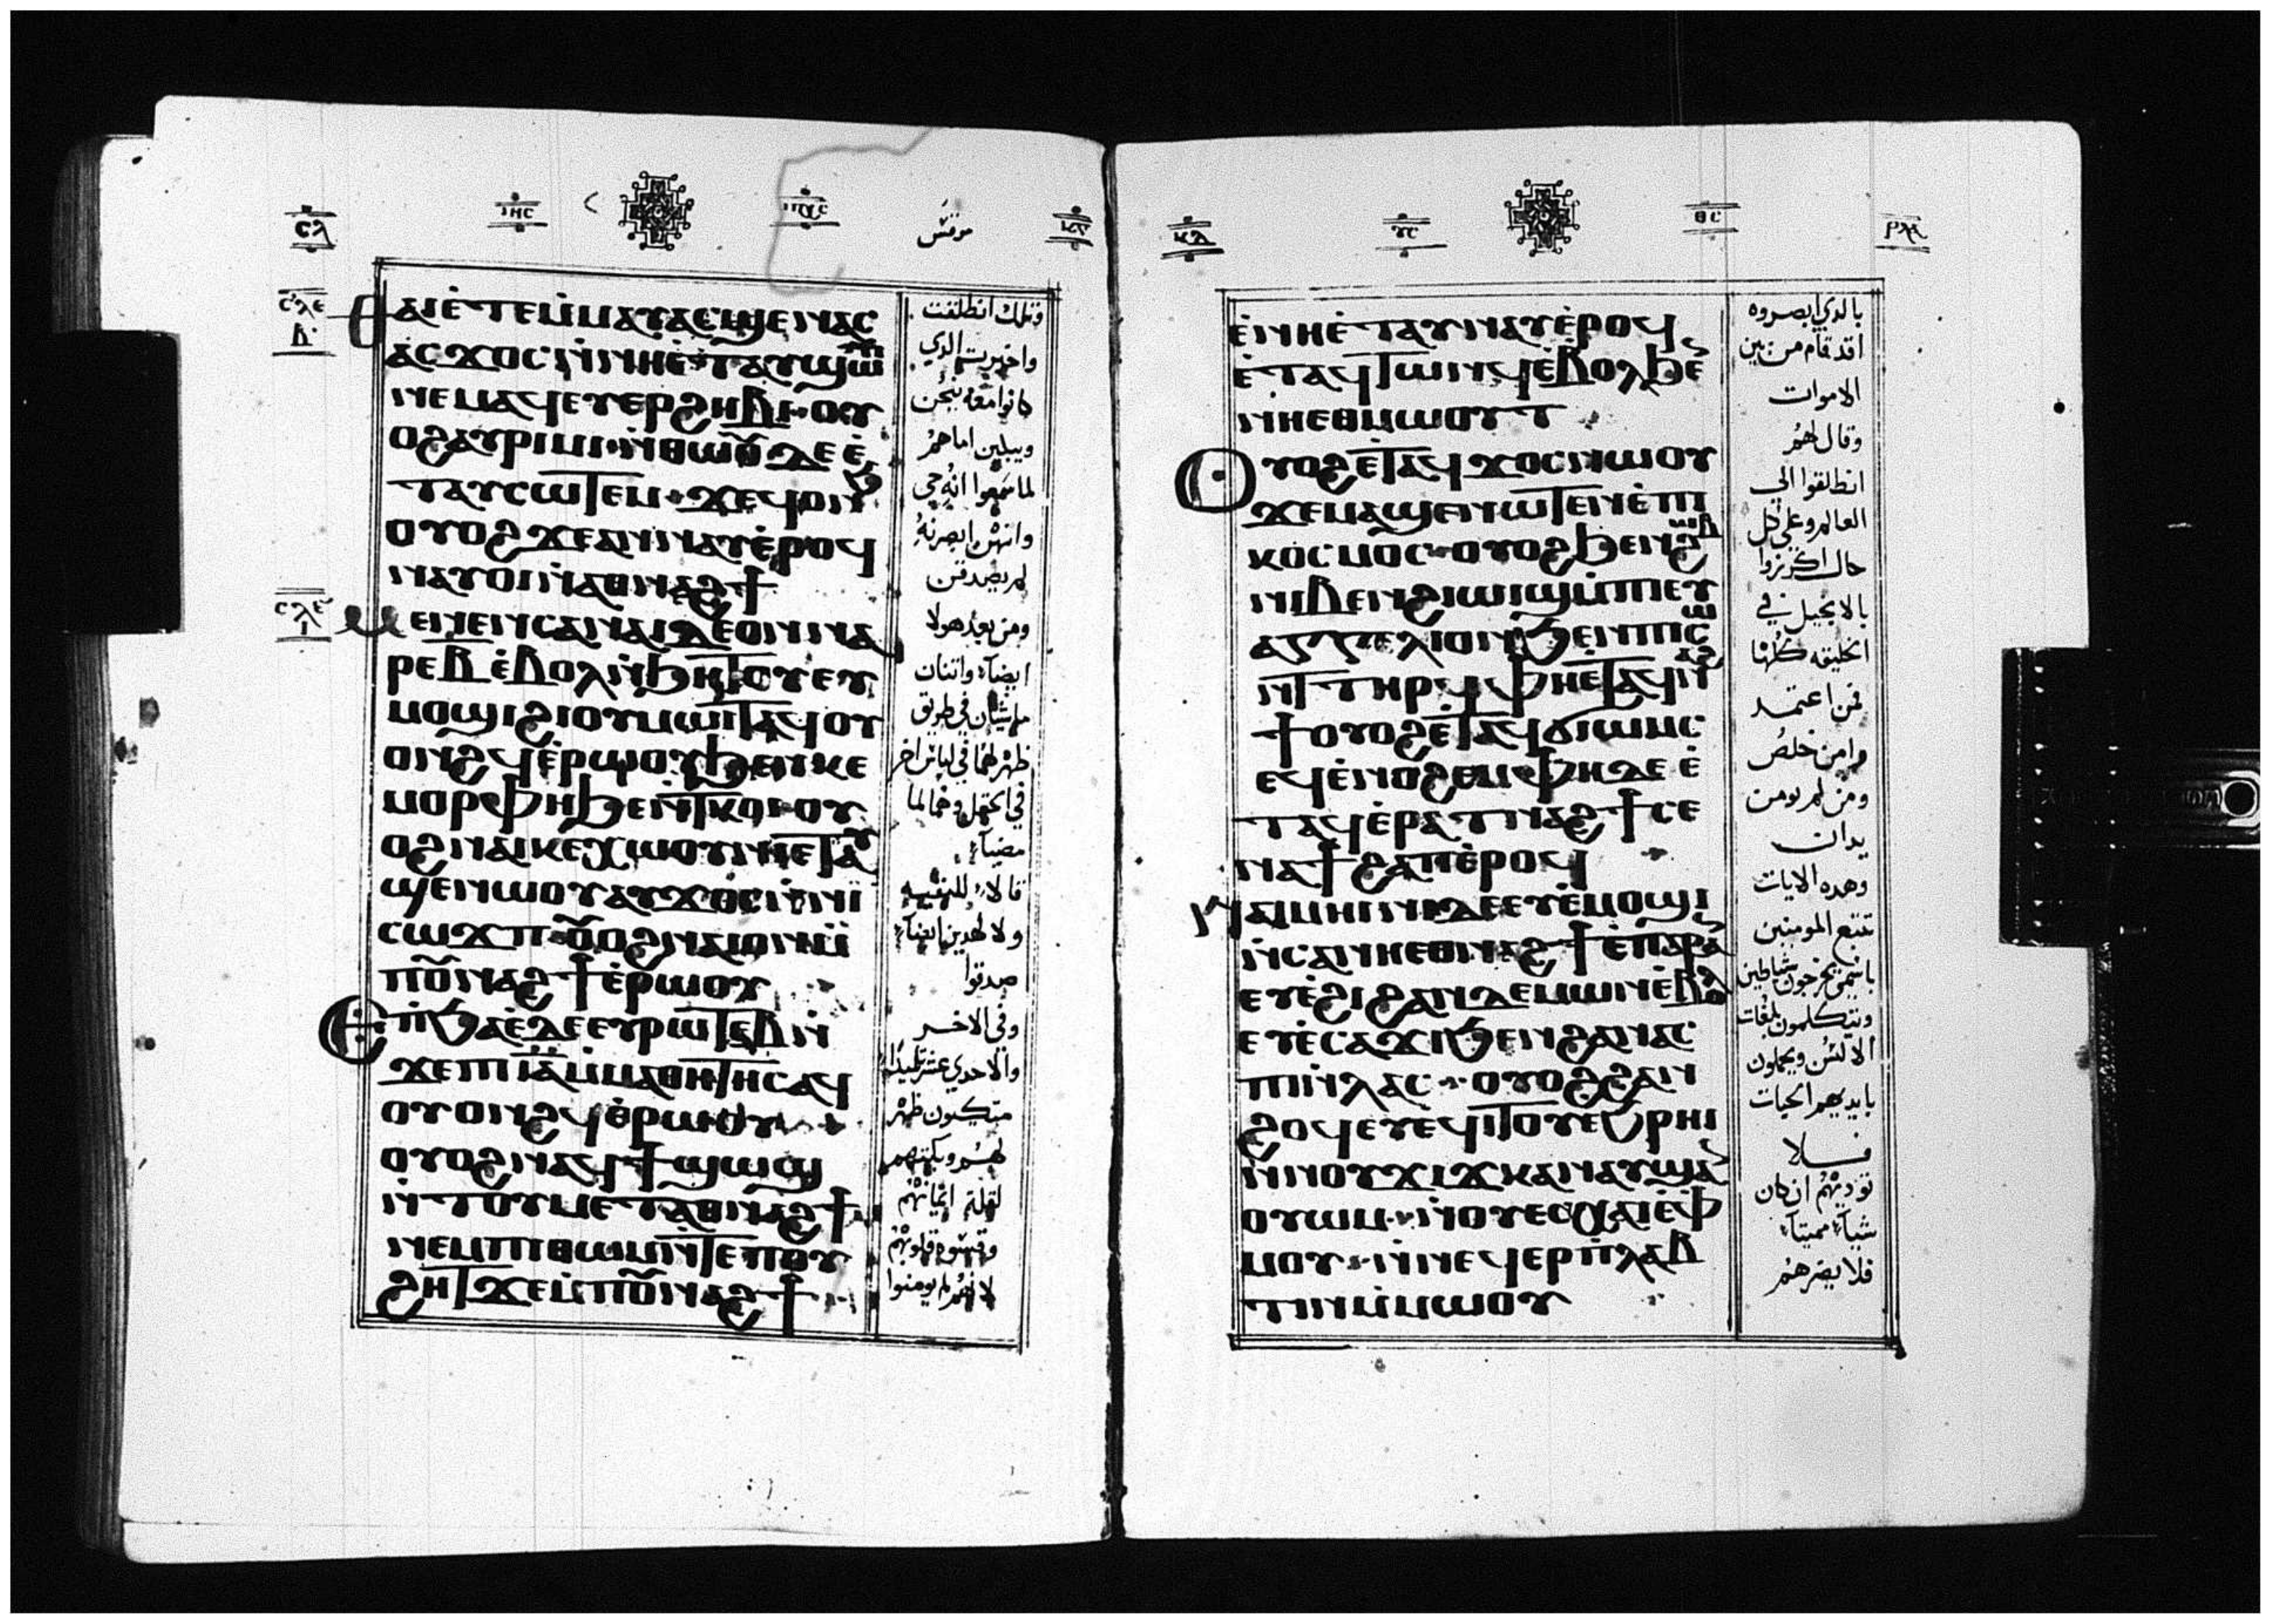 ⲓⲏⲥ
ⲥⲗ
ⲑⲁⲓ ⲉ̀ⲧⲉⲙ̀ⲙⲁⲩ ⲁⲥϣⲉⲛⲁⲥ
ⲁⲥϫⲟⲥ ⲛ̀ⲛⲏ ⲉ̀ⲧⲁⲩϣⲱⲡⲓ
ⲛⲉⲙⲁϥ ⲉⲩⲉⲣϩⲏⲃⲓ ⲟⲩ
ⲟϩ ⲁⲩⲣⲓⲙⲓ ⲛ̀ⲑⲱⲟⲩ ⲇⲉ ⲉ̀
ⲧⲁⲩⲥⲱⲧⲉⲙ ϫⲉ ϥⲟⲛϧ
ⲟⲩⲟϩ ϫⲉ ⲁⲛⲛⲁⲩ ⲉ̀ⲣⲟϥ
ⲛⲁⲩⲟⲓ ⲛ̀ⲁⲑⲛⲁϩϯ
ⲙⲉⲛⲉⲛⲥⲁ ⲛⲁⲓ ⲇⲉ ⲟⲛ ⲛⲁ
ⲣⲉ ⲃ̅ ⲉ̀ⲃⲟⲗ ⲛ̀ϧⲏⲧⲟⲩ ⲉⲩ
ⲙⲟϣⲓ ϩⲓ ⲟⲩⲙⲱⲓⲧ ⲁϥⲟⲩ
ⲟⲛϩϥ ⲉ̀ⲣⲱⲟⲩ ϧⲉⲛ ⲕⲉ
ⲙⲟⲣⲫⲏ ϧⲉⲛ ⲧⲕⲟⲓ ⲟⲩ
ⲟϩ ⲛⲁⲓⲕⲉⲭⲱⲟⲩⲛⲓ ⲉⲧⲁⲩ
ϣⲉⲛⲱⲟⲩ ⲁⲩϫⲟⲥ ⲙ̀ⲡⲓ
ⲥⲱϫⲡ ⲟⲩⲟϩ ⲛⲁⲓ ⲟⲛ ⲙ̀
ⲡⲟⲩⲛⲁϩϯ ⲉ̀ⲣⲱⲟⲩ
ⲉⲡϧⲁⲉ̀ ⲇⲉ ⲉⲩⲣⲱⲧⲉⲃ ⲛ̀
ϫⲉ ⲡⲓ ⲓ̅ⲁ̅ ⲙ̀ⲙⲁⲑⲏⲧⲏⲥ ⲁϥ
ⲟⲩⲟⲛϩϥ ⲉ̀ⲣⲱⲟⲩ
ⲟⲩⲟϩ ⲛⲁϥϯϣⲱϣ
ⲛ̀ⲧⲟⲩⲙⲉⲧⲁⲑⲛⲁϩϯ
ⲛⲉⲙ ⲡⲓⲑⲱⲙ ⲛ̀ⲧⲉ ⲡⲟⲩ
ϩⲏⲧ ϫⲉ ⲙ̀ⲡⲟⲩⲛⲁϩϯ
وتلك انطلقت
واخبرت الدي
كانوا معه ينحن
ويبلين اماهم
لما سمعوا انه حي
وانهن ابصرنه
لم يصدقن
ومن بعد هولا
ايضا واتنان
ماشيان في طريق
ظهر لهما في لباس اخر
في الحقل وهما لما
مضيا
قالا للبقيه
ولا لهدين ايضا
صدقوا
وفي الاخر
والاحدي عشر تلميدا
متكيون ظهر
لهم وبكتهم
لقلة ايمانهم
وقسوة قلوبهم
لانهم لم يومنوا
ⲕⲇ
ⲩⲥ
ⲑⲥ
ⲉ̀ⲛⲏ ⲉ̀ⲧⲁⲩⲛⲁⲩ ⲉ̀ⲣⲟϥ
ⲉ̀ⲧⲁϥⲧⲱⲛϥ ⲉ̀ⲃⲟⲗ ϧⲉ
ⲛⲏ ⲉⲑⲙⲱⲟⲩⲧ
ⲟⲩⲟϩ ⲉ̀ⲧⲁϥϫⲟⲥ ⲛⲱⲟⲩ
ϫⲉ ⲙⲁϣⲉⲛⲱⲧⲉⲛ ⲉ̀ⲡⲓ
ⲕⲟⲥⲙⲟⲥ ⲟⲩⲟϩ ϧⲉⲛ ϩⲱⲃ
ⲛⲓⲃⲉⲛ ϩⲓⲱⲓϣ ⲙ̀ⲡⲓⲉⲩ
ⲁⲅⲅⲉⲗⲓⲟⲛ ϧⲉⲛ ⲡⲓⲥⲱ
ⲛⲧ ⲧⲏⲣϥ ⲫⲏ ⲉⲧⲁϥⲛⲁϩ
ϯ ⲟⲩⲟϩ ⲉ̀ⲧⲁϥϭⲓⲱⲙⲥ
ⲉϥⲉ̀ⲛⲟϩⲉⲙ ⲫⲏ ⲇⲉ ⲉ̀
ⲧⲁϥⲉ̀ⲣⲁⲧⲛⲁϩϯ ⲥⲉ
ⲛⲁϯϩⲁⲡ ⲉ̀ⲣⲟϥ
ⲛⲁⲓⲙⲏⲓⲛⲓ ⲇⲉ ⲉⲩⲉ̀ⲙⲟϣⲓ
ⲛ̀ⲥⲁ ⲛⲏ ⲉⲑⲛⲁϩϯ ⲉ̀ⲡⲁⲣⲁⲛ
ⲉⲩⲉ̀ϩⲓ ϩⲁⲛⲇⲉⲙⲱⲛ ⲉ̀ⲃⲟⲗ
ⲉⲩⲉ̀ⲥⲁϫⲓ ϧⲉⲛ ϩⲁⲛⲁⲥ
ⲡⲓ ⲛ̀ⲗⲁⲥ ⲟⲩⲟϩ ϩⲁⲛ
ϩⲟϥ ⲉⲩⲉ̀ϥⲓⲧⲟⲩ ⲉ̀ϩⲣⲏⲓ
ⲛ̀ⲛⲟⲩϫⲓϫ ⲕⲁⲛ ⲁⲩϣⲁⲛ
ⲟⲩⲱⲙ ⲛ̀ⲟⲩⲉⲛⲭⲁⲓ ⲉ̀ⲫ
ⲙⲟⲩ ⲛ̀ⲛⲉϥⲉⲣⲡ̀ⲗⲁⲃ
ⲧⲓⲛ ⲙ̀ⲙⲱⲟⲩ
بالدي ابصروه
اقد قام من بين
الاموات
وقال لهم
انطلقوا الي
العالم وعلي كل
حال اكرزوا
بالانجيل في
الخليقه كلها
فمن اعتمد
وامن خلص
ومن لم يومن
يدان
وهده الايات
تتبع المومنين
باسمي يخرجون شياطين
ويتكلمون بلغات
الالسن ويحملون
بايديهم الحيات
فلا
توديهم ان كان
شيا مميتا
فلا يضرهم